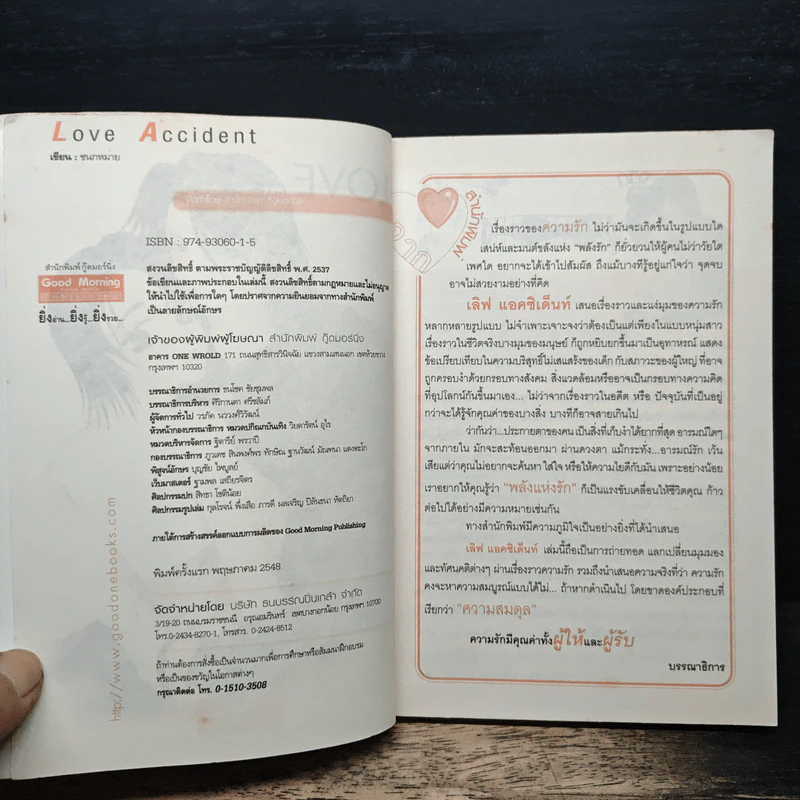 Love Accident
เขียน : ชนกหมาย
ISBN : 974-93060-1-5
สำนักพิมพ์ กู๊ดมอร์นิ่ง
Good Morning
ยิ่งอ่าน...ยิ่งรู้...ยิ่งรวย...
สงวนลิขสิทธิ์ ตามพระราชบัญญัติลิขสิทธิ์ พ.ศ. 2537
ข้อเขียนและภาพประกอบในเล่มนี้ สงวนลิขสิทธิ์ตามกฎหมายและไม่อนุญาต
ให้นำไปใช้เพื่อการใดๆ โดยปราศจากความยินยอมจากทางสำนักพิมพ์
เป็นลายลักษณ์อักษร
เจ้าของผู้พิมพ์ผู้โฆษณา สำนักพิมพ์ กู๊ดมอร์นิ่ง
อาคาร ONE WROLD 171 ถนนสุทธิสารวินิจฉัย แขวงสามเสนนอก เขตห้วยขวาง
กรุงเทพฯ 10320
บรรณาธิการอำนวยการ ชนโชค ชัยชุมพล
บรรณาธิการบริหาร ศิริกานดา ศรีชลัมภ์
ผู้จัดการทั่วไป วรภัค นววงศ์วิวัฒน์
หัวหน้ากองบรรณาธิการ หมวดปกิณกบันเทิง วิยดารัตน์ อุไร
หมวดบริหารจัดการ ฐิตารีย์ พรวาปี
กองบรรณาธิการ ภูวเดช สินพงศ์พร ทักษิณ ฐานวัฒน์ มัณฑนา แดงตะโก
พิสูจน์อักษร บุญชัย ไพบูลย์
เว็บมาสเตอร์ ฐามพล เสถียรจิตร
ศิลปกรรมปก สิทธา โชติน้อย
ศิลปกรรมรูปเล่ม กุลโรจน์ พึ่งเสือ ภารดี ผลเจริญ ปิลันธนา ทัดถิยา
ภายใต้การสร้างสรรค์ออกแบบการผลิตของ Good Morning Publishing
พิมพ์ครั้งแรก พฤษภาคม 2548
จัดจำหน่ายโดย บริษัท ธนบรรณปิ่นเกล้า จำกัด
3/19-20 ถนนบรมราชชนนี อรุณอมรินทร์ เขตบางกอกน้อย กรุงเทพฯ 10700
โทร.0-2434-8270-1, โทรสาร. 0-2424-8512
ถ้าท่านต้องการสั่งซื้อเป็นจำนวนมากเพื่อการศึกษาหรือสัมมนาฝึกอบรม
หรือเป็นของขวัญในโอกาสต่างๆ
กรุณาติดต่อ โทร. 0-1510-3508
http://www.goodonebooks.com
จากสำนักพิมพ์
เรื่องราวของความรัก ไม่ว่ามันจะเกิดขึ้นในรูปแบบใด
เสน่ห์และมนต์ขลังแห่ง “พลังรัก” ก็ยั่วยวนให้ผู้คนไม่ว่าวัยใด
เพศใด อยากจะได้เข้าไปสัมผัส ถึงแม้บางทีรู้อยู่แก่ใจว่า จุดจบ
อาจไม่สวยงามอย่างที่คิด
เลิฟ แอคซิเด็นท์ เสนอเรื่องราวและแง่มุมของความรัก
หลากหลายรูปแบบ ไม่จำเพาะเจาะจงว่าต้องเป็นแต่เพียงในแบบหนุ่มสาว
เรื่องราวในชีวิตจริงบางมุมของมนุษย์ ก็ถูกหยิบยกขึ้นมาเป็นอุทาหรณ์ แสดง
ข้อเปรียบเทียบในความบริสุทธิ์ไม่เสแสร้งของเด็ก กับสภาวะของผู้ใหญ่ ที่อาจ
ถูกครอบงำด้วยกรอบทางสังคม สิ่งแวดล้อมหรืออาจเป็นกรอบทางความคิด
ที่อุปโลกน์กันขึ้นมาเอง... ไม่ว่าจากเรื่องราวในอดีต หรือ ปัจจุบันที่เป็นอยู่
กว่าจะได้รู้จักคุณค่าของบางสิ่ง บางทีก็อาจสายเกินไป
ว่ากันว่า...ประกายตาของคน เป็นสิ่งที่เก็บงำได้ยากที่สุด อารมณ์ใดๆ
จากภายใน มักจะสะท้อนออกมา ผ่านดวงตา แม้กระทั่ง...อารมณ์รัก เว้น
เสียแต่ว่าคุณไม่อยากจะค้นหา ใส่ใจ หรือให้ความไยดีกับมัน เพราะอย่างน้อย
เราอยากให้คุณรู้ว่า “พลังแห่งรัก” ก็เป็นแรงขับเคลื่อนให้ชีวิตคุณ ก้าว
ต่อไปได้อย่างมีความหมายเช่นกัน
ทางสำนักพิมพ์มีความภูมิใจเป็นอย่างยิ่งที่ได้นำเสนอ
เลิฟ แอคซิเด็นท์ เล่มนี้ถือเป็นการถ่ายทอด แลกเปลี่ยนมุมมอง
และทัศนคติต่างๆ ผ่านเรื่องราวความรัก รวมถึงนำเสนอความจริงที่ว่า ความรัก
คงจะหาความสมบูรณ์แบบได้ไม่... ถ้าหากดำเนินไป โดยขาดองค์ประกอบที่
เรียกว่า “ความสมดุล”
ความรักมีคุณค่าทั้งผู้ให้และผู้รับ
บรรณาธิการ